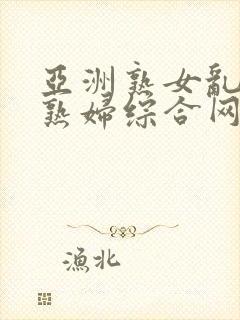 亞洲熟女亂
熟婦综合网
渔北